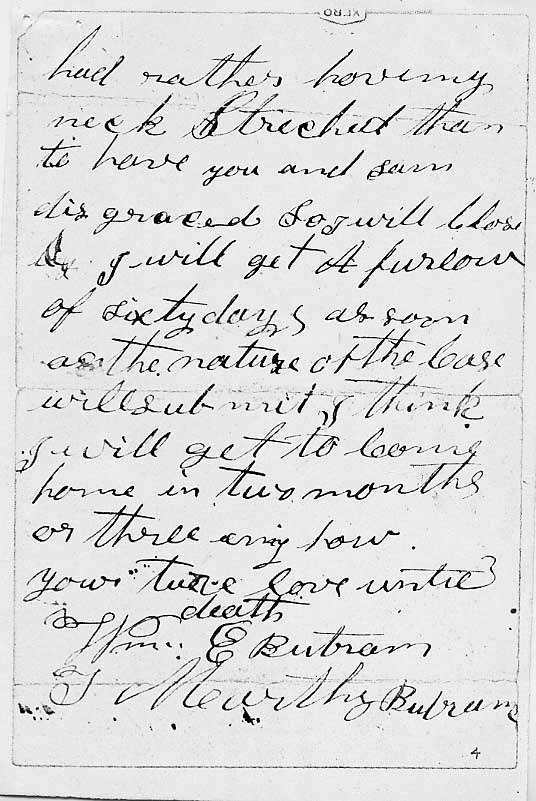 XERO
had rather have my
neck Streched than
to have you and sam
dis graced So I will Close
I will get A furlow
of sixty days as soon
as the nature of the Case
will submit I think
I will get to Come
home in two months
or three any how.
your true love untill
death
Wm. E Butram
T Marthy Butram
4